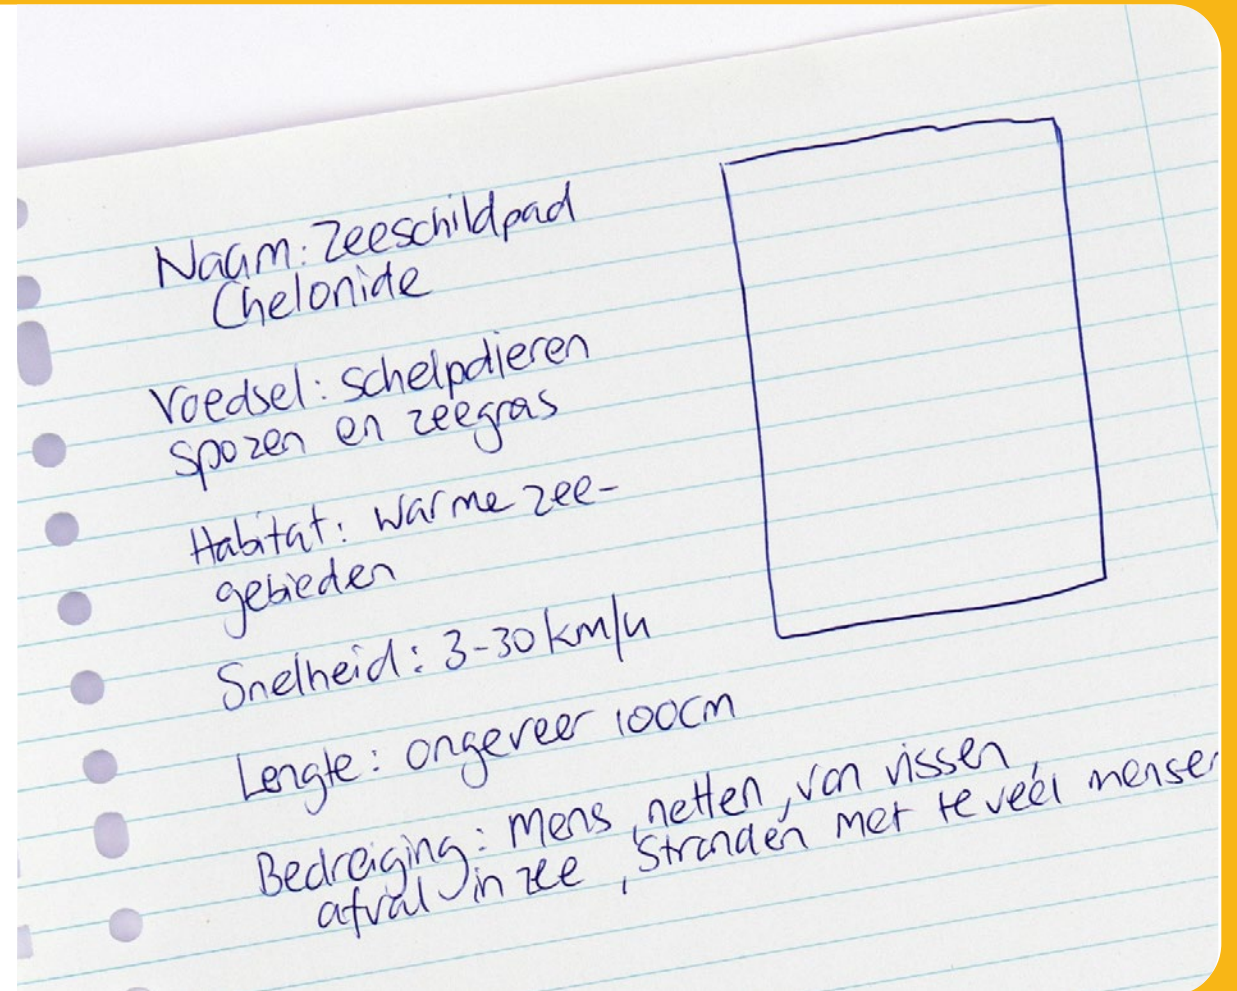 Naam: Zeeschildpad
Chelonide
Voedsel: schelpdieren
spozen en zeegras
Habitat: warme zee-
gebieden
Snelheid: 3-30 km/u
Lengte: ongeveer 100cm
Bedreiging: Mens, netten, van vissen,
afval in zee, Stranden met te veel mense